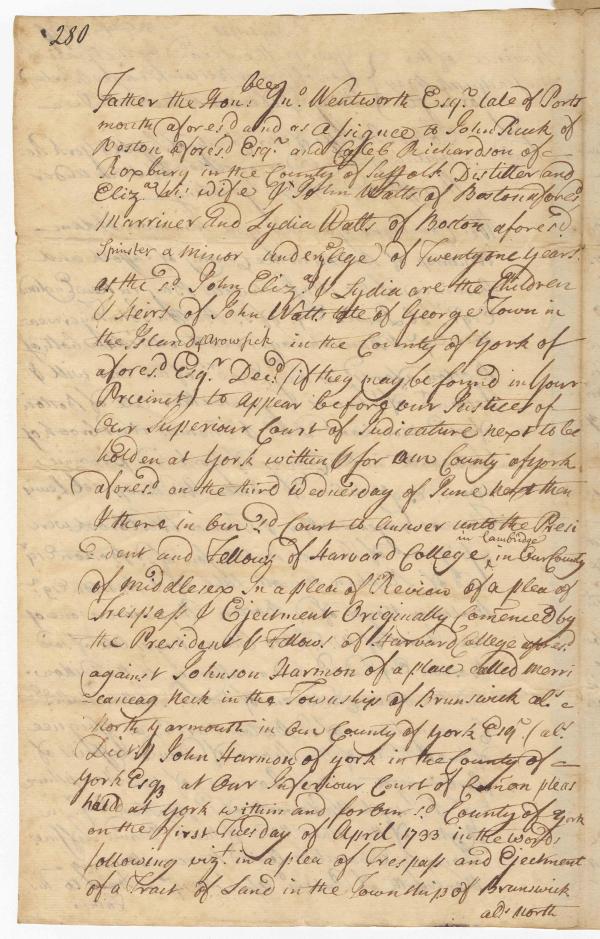 280
Father the Hon:
Jn:o Wentworth Esq:r late of Ports
mouth aforesd and as Assignee to John Ruck of
Boston aforesd Esq:r and Caleb Richardson of
Roxbury in the County of Suffolk Distiller and
Eliz:a his wife & John Watts of Boston afores:d
Marriner and Lydia Watts of Boston afores:d
Spinster a minor under Age of Twenty one years
as the sd John Eliz:a & Lydia are the Children
& Heirs of John Watts late of George Town in
the Island Arowsick in the County of York of
afores:d Esq:r Dec:d (if they may be found in your
Precinct) to appear before our Justices of
Our Superiour Court of Judicature next to be
holden at York within & for our County of York
afores:d on the third Wednesday of June next then
& there in Our sd Court to Answer unto the Presi
in Cambridge
=dent and Fellows of Harvard College in Our County
of Middlesex In a plea of Review of a plea of
Trespass & Ejectment Originally Com̄enced by
the President & Fellows of Harvard College afores:d
against Johnson Harmon of a place called Merri
=caneag Neck in the Township of Brunswick als
North Yarmouth in Our County of York Esq:r (als
Dict:s) John Harmon of York in the County of
York Esq:r at Our Inferiour Court of Com̄on pleas
held at York within and for Our sd County of York
on the first Tuesday of April 1733 in the words
following viz:t in a plea of Trespass and Ejectment
of a Tract of Land in the Township of Brunswick
als North